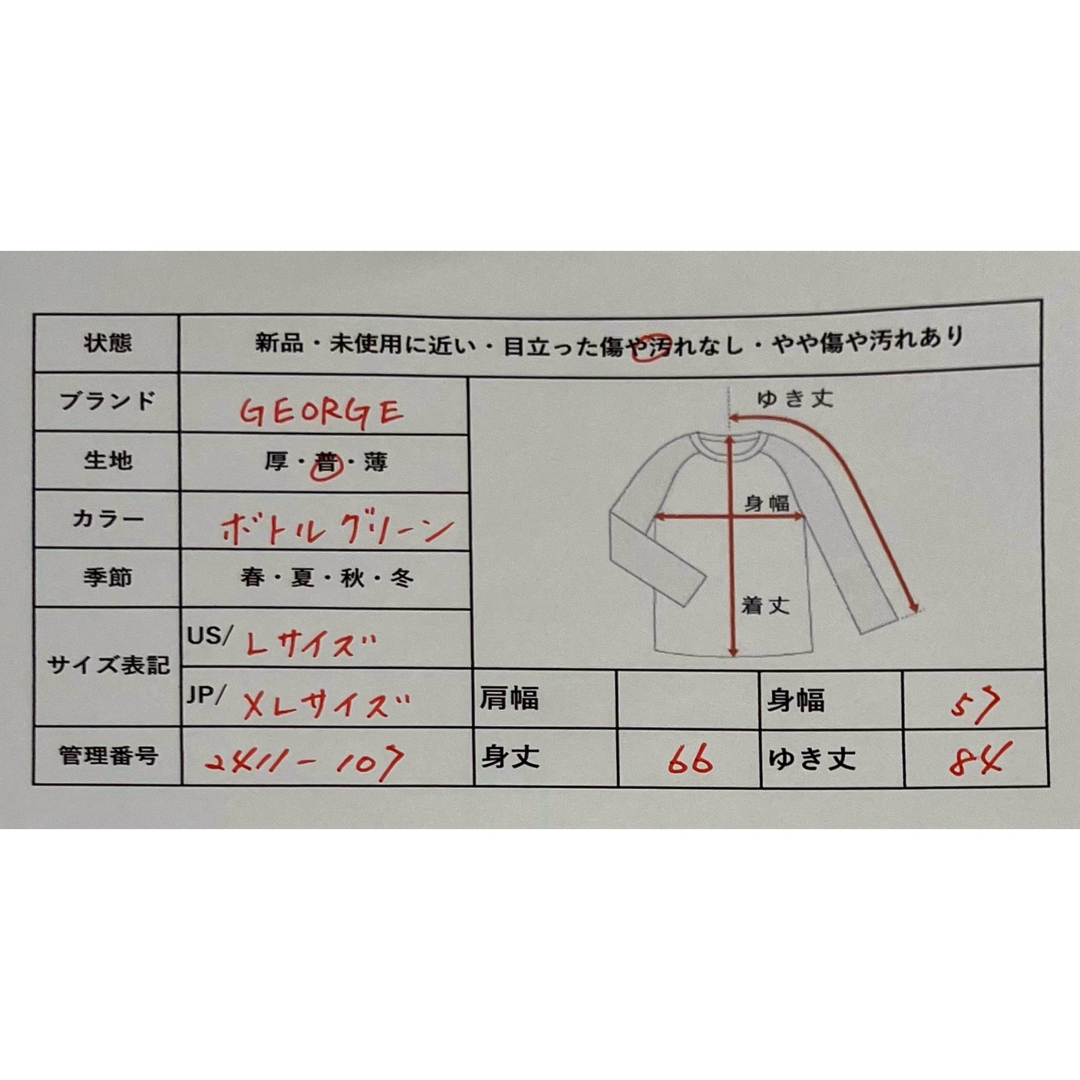 状態 新品・未使用に近い・目立った傷や汚れなし・やや傷や汚れあり
ブランド GEORGE
ゆき丈
生地 厚・普・薄
身幅
カラー ボトルグリーン
季節 春・夏・秋・冬
着丈
サイズ表記
US/ Lサイズ
JP/ XLサイズ
肩幅 身幅 57
管理番号 2411-107 身丈 66 ゆき丈 84